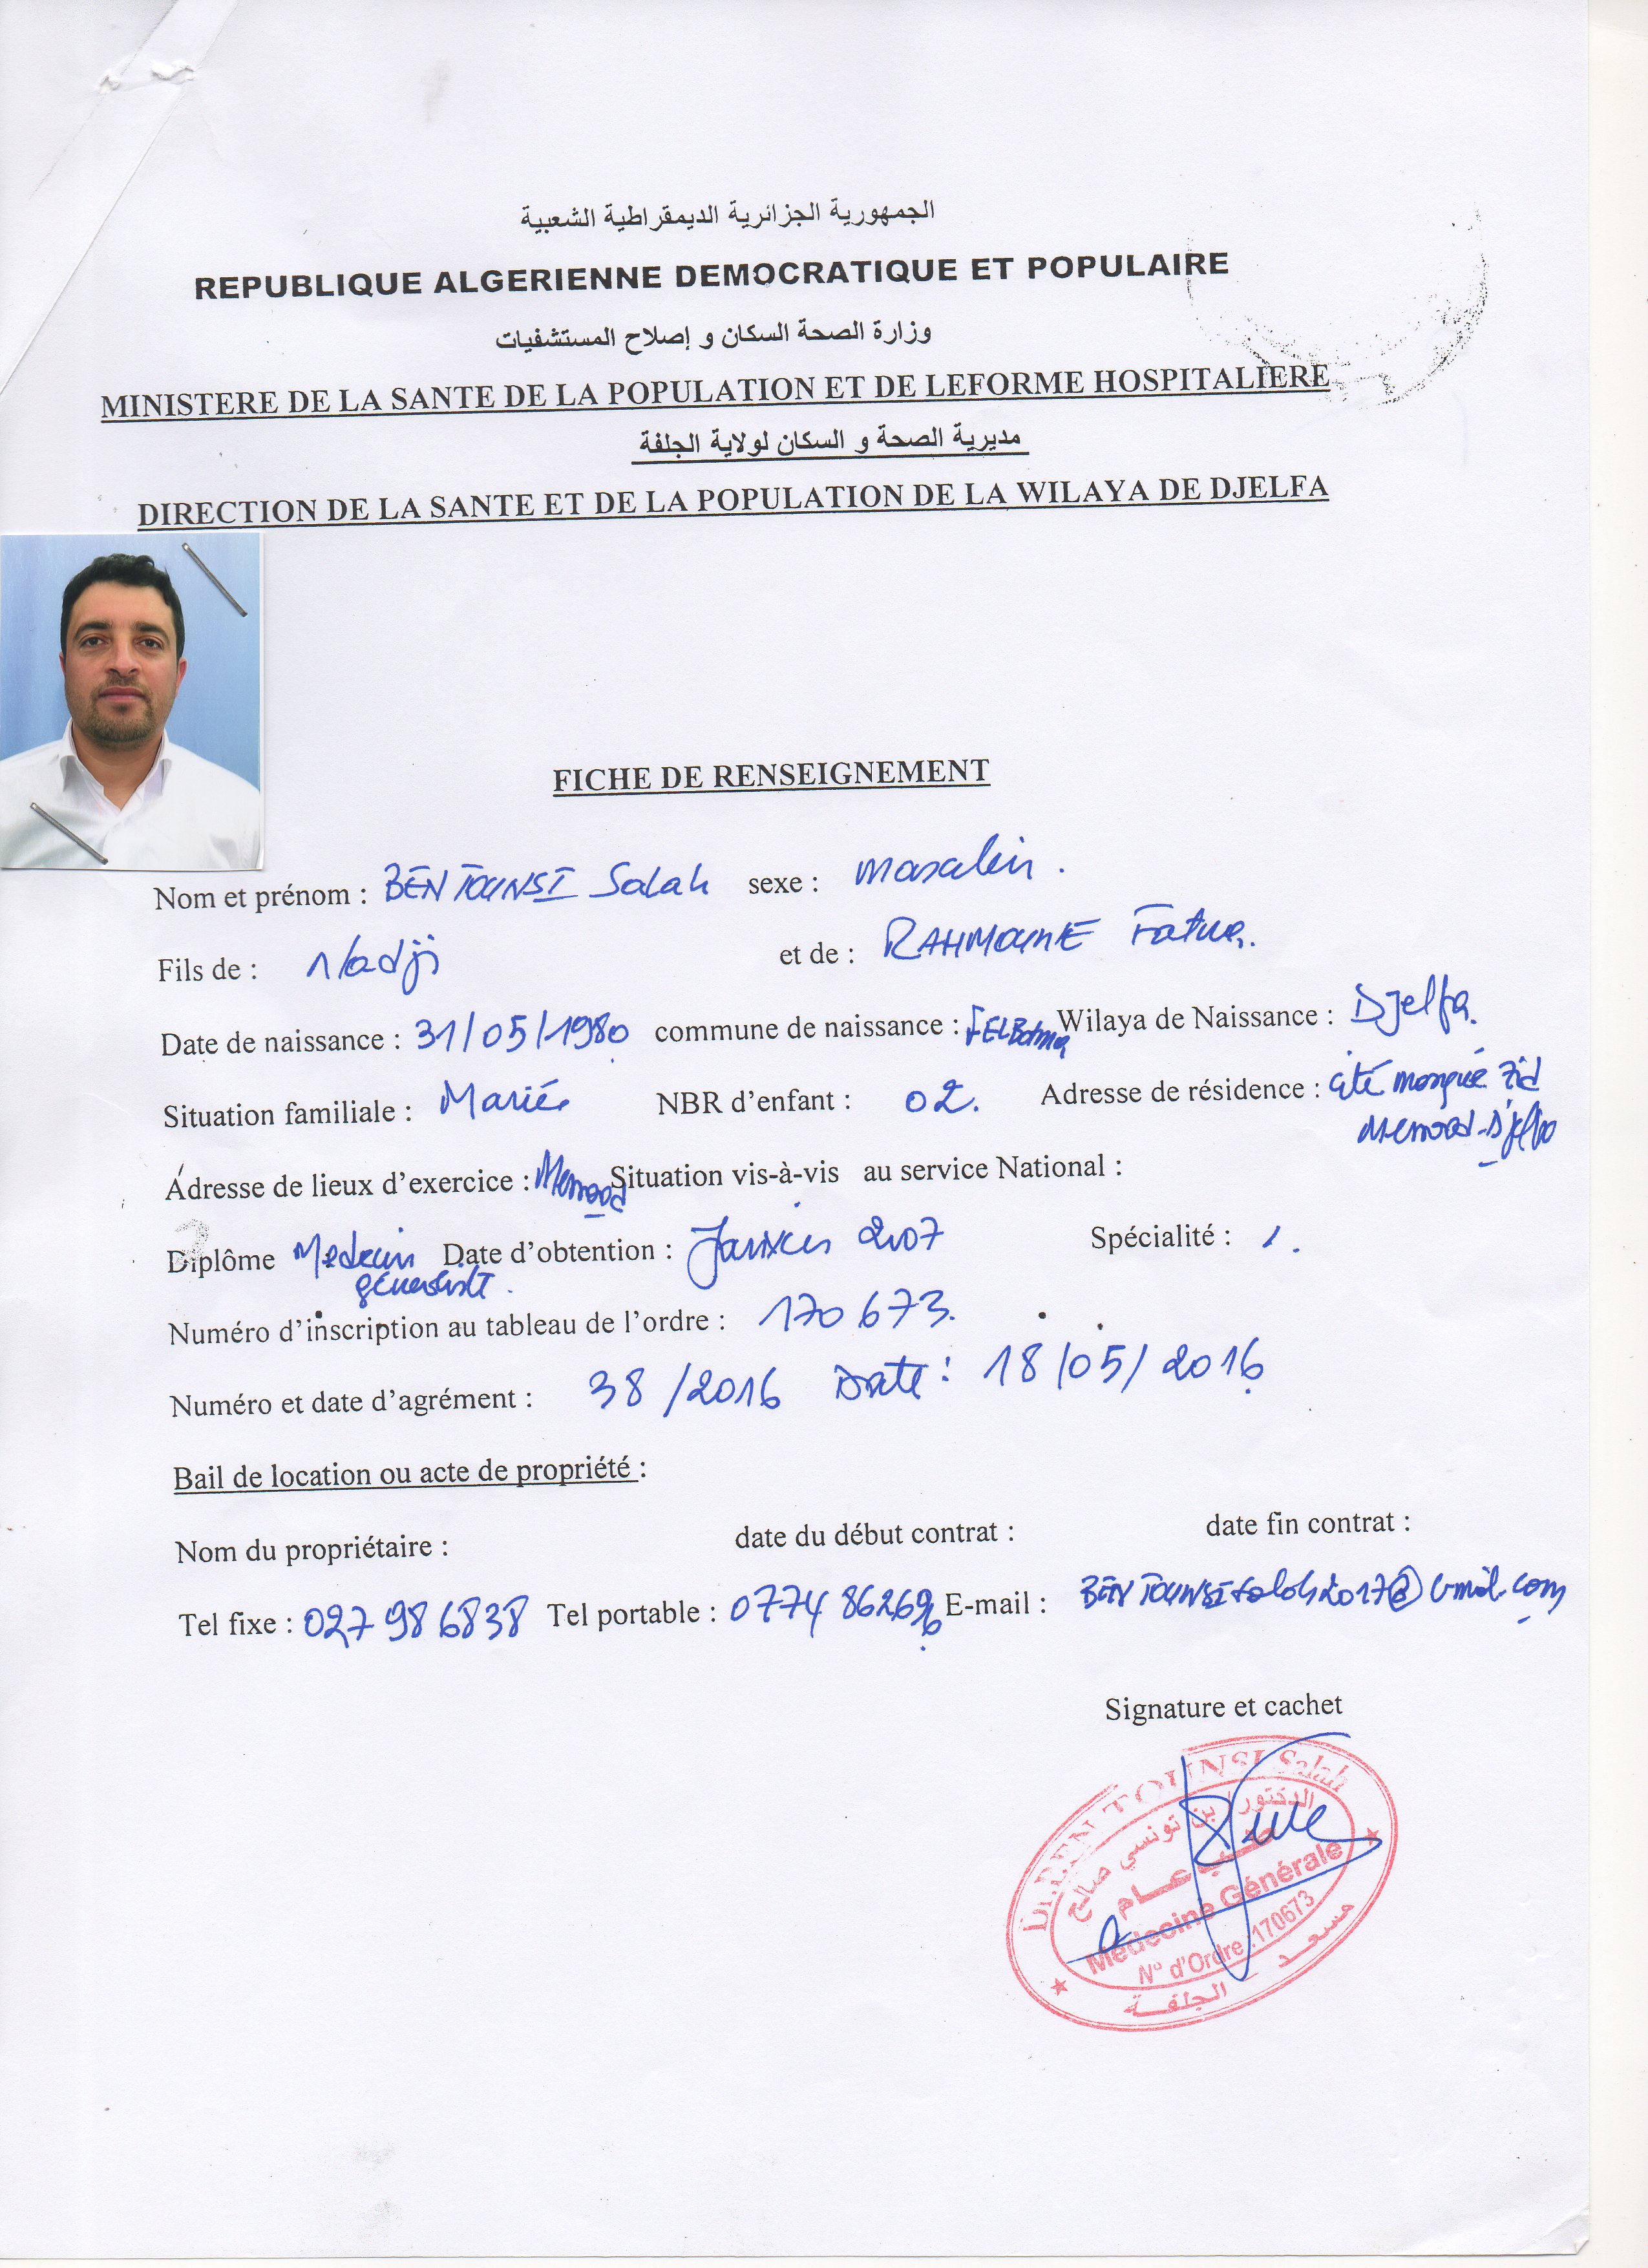 الجمهورية الجزائرية الديمقراطية الشعبية
REPUBLIQUE ALGERIENNE DEMOCRATIQUE ET POPULAIRE
وزارة الصحة السكان و إصلاح المستشفيات
MINISTERE DE LA SANTE DE LA POPULATION ET DE LEFORME HOSPITALIERE
مديرية الصحة و السكان لولاية الجلفة
DIRECTION DE LA SANTE ET DE LA POPULATION DE LA WILAYA DE DJELFA
FICHE DE RENSEIGNEMENT
Nom et prénom : BEN TOUNSI Salah sexe : masculin .
Fils de : et de : RAHMOUNE
Date de naissance : 31/05/1980 commune de naissance : Wilaya de Naissance : Djelfa.
Situation familiale : Marié NBR d'enfant : 02. Adresse de résidence : cité
Djelfa
Adresse de lieux d'exercice : Situation vis-à-vis au service National :
Diplôme Medecin Date d'obtention : 2007 Spécialité : / .
généraliste .
Numéro d'inscription au tableau de l'ordre : 170 673.
Numéro et date d'agrément : 38 /2016 Date : 18 /05/ 2016
Bail de location ou acte de propriété :
Nom du propriétaire : date du début contrat : date fin contrat :
Tel fixe : 027 98 6838 Tel portable : E-mail : BEN TOUNSIsalah2017@Gmail.com
Signature et cachet
Dr.BEN TOUNSI Salah
الدكتور/ بن تونسي صالح
طبيب عام
Médecine Générale
N° d'Ordre :170673
مسعد - الجلفة